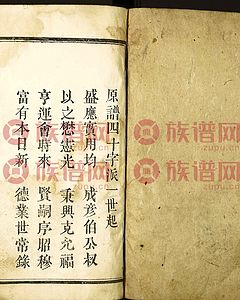 原譜四十字派一世起
盛應實用均 成彦伯公叔
以之懋憲光 秉興克允福
亨運會時來 賢嗣序昭穆
富有本日新 德業世常錄
族谱网
www.zupu.cn
族谱网
www.zupu.cn